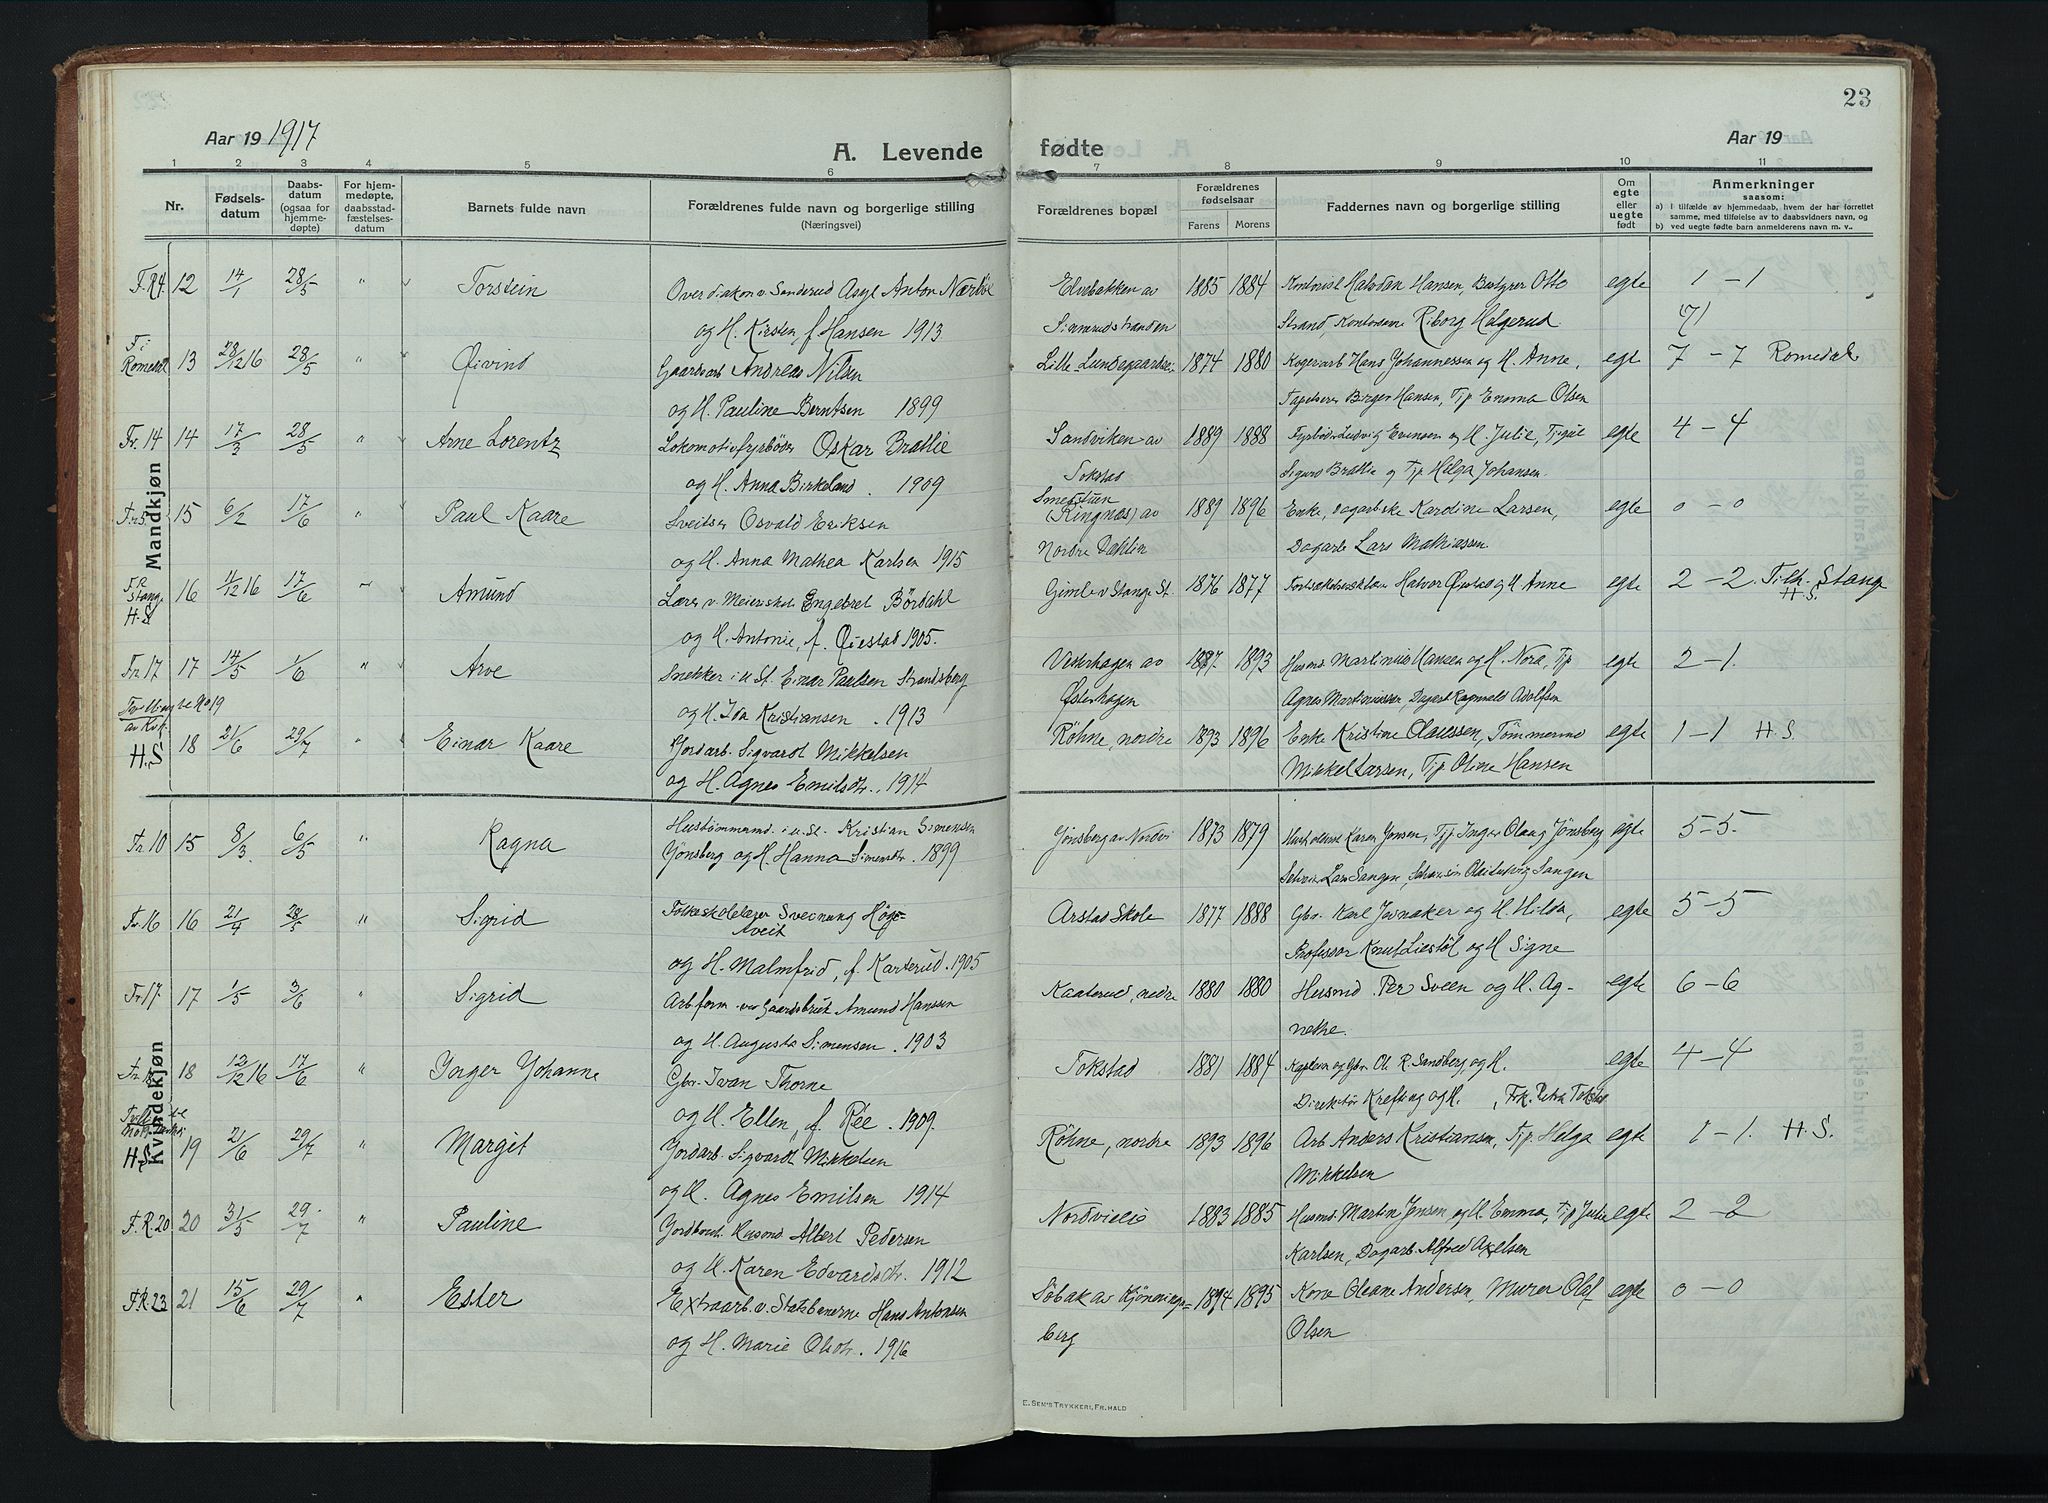 23
Aar 19 1917
A. Levende fødte
Aar 19
1 2 3 4 5 6 7 8 9 10 11
Nr.
Fødsels-
datum
Daabs-
datum
(ogsaa for
hjemme-
døpte)
For hjem-
medøpte,
daabsstad-
fæstelses-
datum
Barnets fulde navn
Forældrenes fulde navn og borgerlige stilling
(Næringsvei)
Forældrenes bopæl
Forældrenes
fødselsaar
Farens Morens
Faddernes navn og borgerlige stilling
Om
egte
eller
uegte
født
Anmerkninger
saasom:
a) I tilfælde av hjemmedaab, hvem der har forrettet
samme, med tilføielse av to daabsvidners navn, og
b) ved uegte fødte barn anmelderens navn m. v..
Mandkjøn
12 14/1 28/5 " Torstein Overdiakon v. Sanderud Asyl Anton Elvebakken av 1885 1884 Halvdan Hansen, Bestyrer Otto egte 1 - 1
og H. Kirsten, f. Hansen 1913 Strand, Riborg Helgerud
F. i
Romedal 13 28/12 16 28/5 " Øivind Gaardsarb Andreas Nilsen Lille-Lundsgaards 1874 1880 Hans Johannessen og H. Anne, egte 7 - 7 Romedal
og H. Pauline Berntsen 1899 Tapetserer Birger Hansen, Tjp Emma Olsen
Fr. 14 14 17/3 28/5 " Arne Lorentz Lokomotivfyrbøder Oskar Brattlie Sandviken av 1889 1888 Fyrbøder Ludvig Evensen og H. Julie, egte 4 - 4
og H. Anna Birkelund. 1909 Tokstad Sigurd Brattlie og Tjp Helga Johansen.
15 6/2 17/6 " Paul Kaare Sveitser Osvald Eriksen Smedstuen (Ringnæs) av 1889 1896 Enke, Dagarbske Karoline Larsen, egte 0 - 0
og H. Anna Mathea Karlsen 1915 Nordre Dahlin Dagarb Lars Mathiassen.
F.R.
Stange
H.S 16 11/12 16 17/6 Amund Lærer v. Meieriskol. Engebret Børdahl Gimle v Stange St. 1876 1877 Halvor Øiestad og H Anne egte 2 - 2 Tilh. Stange
H.S.
og H. Antonie, f. Øiestad 1905.
Fr. 17 17 14/5 1/6 " Arve Snekker i u St. Einar Paulsen Strandsberg Vesterhagen av 1887 1893 Husmd Martinius Hansen og H. Nora, Tjp egte 2 - 1.
og H. Ida Kristiansen. 1913 Østerhagen Agnes Martinussen, Dagarb Ragnvald Adolfsen
H.S 18 21/6 29/7 " Einar Kaare Jordarb. Sigvardt Mikkelsen Røhne, nordre 1893 1896 Enke Kristine Claussen, Tømmermd egte 1 - 1 H.S.
og H. Agnes Emilsdtr. 1914 Mikkel Larsen, Tjp Oline Hansen
Kvindekjøn
Fr 10 15 8/3 6/5 " Ragna Hustømmermd. i u. St. Kristian Simensen Jønsberg av Nordvi 1873 1879 Karen Jensen, Tjp. Inger Olsen Jønsberg egte 5 - 5.
Jønsberg og H. Hanna Simensdtr. 1899
Fr. 16 16 21/4 28/5 " Sigrid Folkeskolelærer Sveinung Høg-
Aveit Arstad Skole 1877 1888 Gbr. Karl Jevnaker og H. Hilda, egte 5 - 5
og H. Malmfrid, f. Karterud. 1905 Professor Knut Liestøl og H Signe
Fr. 17. 17 1/5 3/6 " Sigrid Arbform. ved Gaardsbruk Amund Hanssen Kaaterud, nedre 1880 1880 Husmd Per Sveen og H. Ag- egte 6 - 6
og H. Augusta Simensen. 1903 nethe.
18 12/12 16 17/6 " Inger Johanne Gbr. Ivan Thorne Tokstad 1881 1884 Kaptein og Gbr. Ol. R. Sandberg og H. egte 4 - 4
og H. Ellen, f. Rée. 1909. Direktør Krefting og H. , Frk. Petra Tokstad
H.S. 19 21/6 29/7 " Margit Jordarb. Sigvardt Mikkelsen Røhne, nordre 1893 1896 Arb Anders Kristiansen, Tjp. Helga egte 1 - 1. H.S.
og H. Agnes Emilsen 1914 Mikkelsen
F.R.20 20 31/5 29/7 " Pauline Husmd Albert Pedersen Nordvielie 1883 1885 Husmd. Martin Jensen og H. Emma, Tjp Julie egte 2 - 2
og H. Karen Edvardsdtr. 1912 Karlsen, Dagarb. Alfred Axelsen
F.R.23 21 15/6 29/7 " Ester Extraarb. v. Statsbanerne Hans Antonsen Søbak av Kjønnings- 1894 1895 Kona Oleane Andersen, Murer Olof egte 0 - 0
og H. Marie Olsdtr. 1916 berg Olsen
E. SEM'S TRYKKERI, FR. HALD